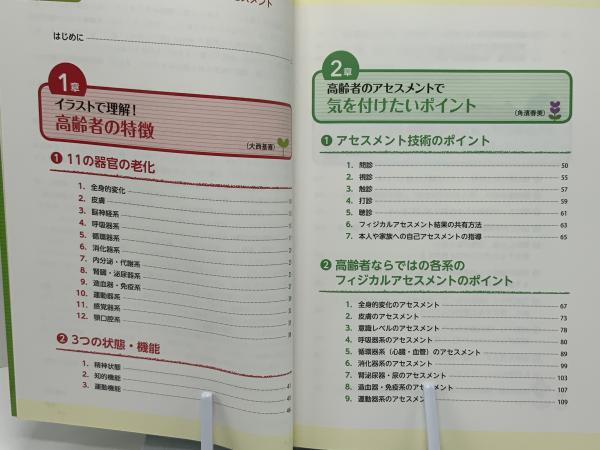 スメント
はじめに
1章
イラストで理解！
高齢者の特徴
（大西基喜）
❶ 11の器官の老化
1. 全身的変化
2. 皮膚
3. 脳神経系
4. 呼吸器系
5. 循環器系
6. 消化器系
7. 内分泌・代謝系
8. 腎臓・泌尿器系
9. 造血器・免疫系
10. 運動器系
11. 感覚器系
12. 顎口腔系
❷ 3つの状態・機能
1. 精神状態
2. 知的機能
3. 運動機能
2章
高齢者のアセスメントで
気を付けたいポイント
（角濱春美）
❶ アセスメント技術のポイント
1. 問診 50
2. 視診 55
3. 触診 57
4. 打診 59
5. 聴診 61
6. フィジカルアセスメント結果の共有方法 63
7. 本人や家族への自己アセスメントの指導 65
❷ 高齢者ならではの各系の
フィジカルアセスメントのポイント
1. 全身的変化のアセスメント 67
2. 皮膚のアセスメント 73
3. 意識レベルのアセスメント 78
4. 呼吸器系のアセスメント 80
5. 循環器系（心臓・血管）のアセスメント 89
6. 消化器系のアセスメント 99
7. 腎泌尿器・尿のアセスメント 103
8. 造血器・免疫系のアセスメント 107
9. 運動器系のアセスメント 109